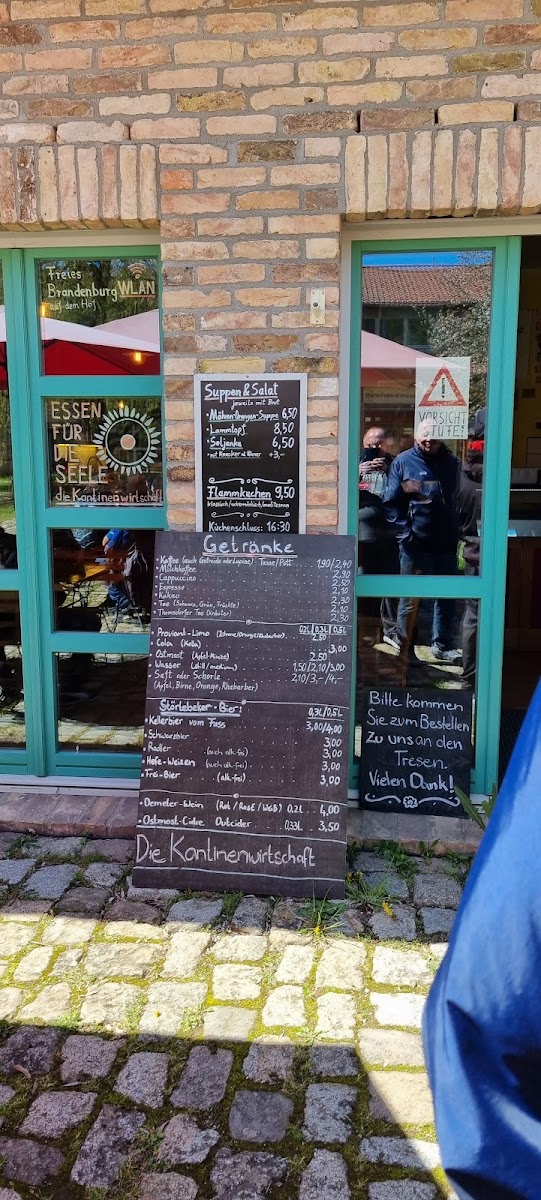 Freies
Brandenburg WLAN
auf dem Hof
ESSEN
FÜR
DIE
SEELE
die Kantinenwirtschaft
Suppen & Salat
jeweils mit Brot
· Möhren-Orangen-Suppe 6,50
· Lammtopf 8,50
· Soljanka 6,50
Flammkuchen 9,50
Küchenschluss: 16:30
VORSICHT
STUFE!
Getränke
· Kaffee (auch Getreide oder Lupine) Tasse/Pott 1,90/2,40
· Milchkaffee
· Cappuccino
· Espresso
· Kakao
· Tee (Schwarz, Grün, Früchte)
0,2L/0,3L/0,5L
· Proviant-Limo
· Cola (Kolla) 3,00
· Ostmost (Apfel-Minze) 2,50
· Wasser (still/medium) 1,50/2,10/3,00
· Saft oder Schorle 2,10/3,-/4,-
(Apfel, Birne, Orange, Rhabarber)
Störtebeker-Bier: 0,3L/0,5L
· Kellerbier vom Fass 3,00/4,00
· Schwarzbier 3,00
· Radler (auch alk-frei) 3,00
· Hefe-Weizen (auch alk-frei) 3,00
· Frei-Bier (alk-frei) 3,00
· Demeter-Wein (Rot/Rosé/Weiß) 0,2L 4,00
· Ostmost-Cidre Outcider 0,33L 3,50
Die Kantinenwirtschaft
Bitte kommen
Sie zum Bestellen
Zu uns an den
Tresen.
Vielen Dank!